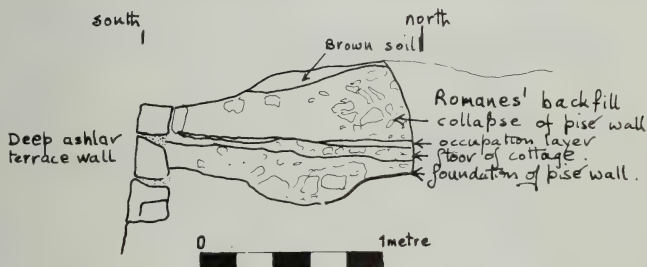 south
north
Brown soil
Romanes' backfill
collapse of pise wall
occupation layer
floor of cottage.
foundation of pise wall.
Deep ashlar
terrace wall
0
1metre